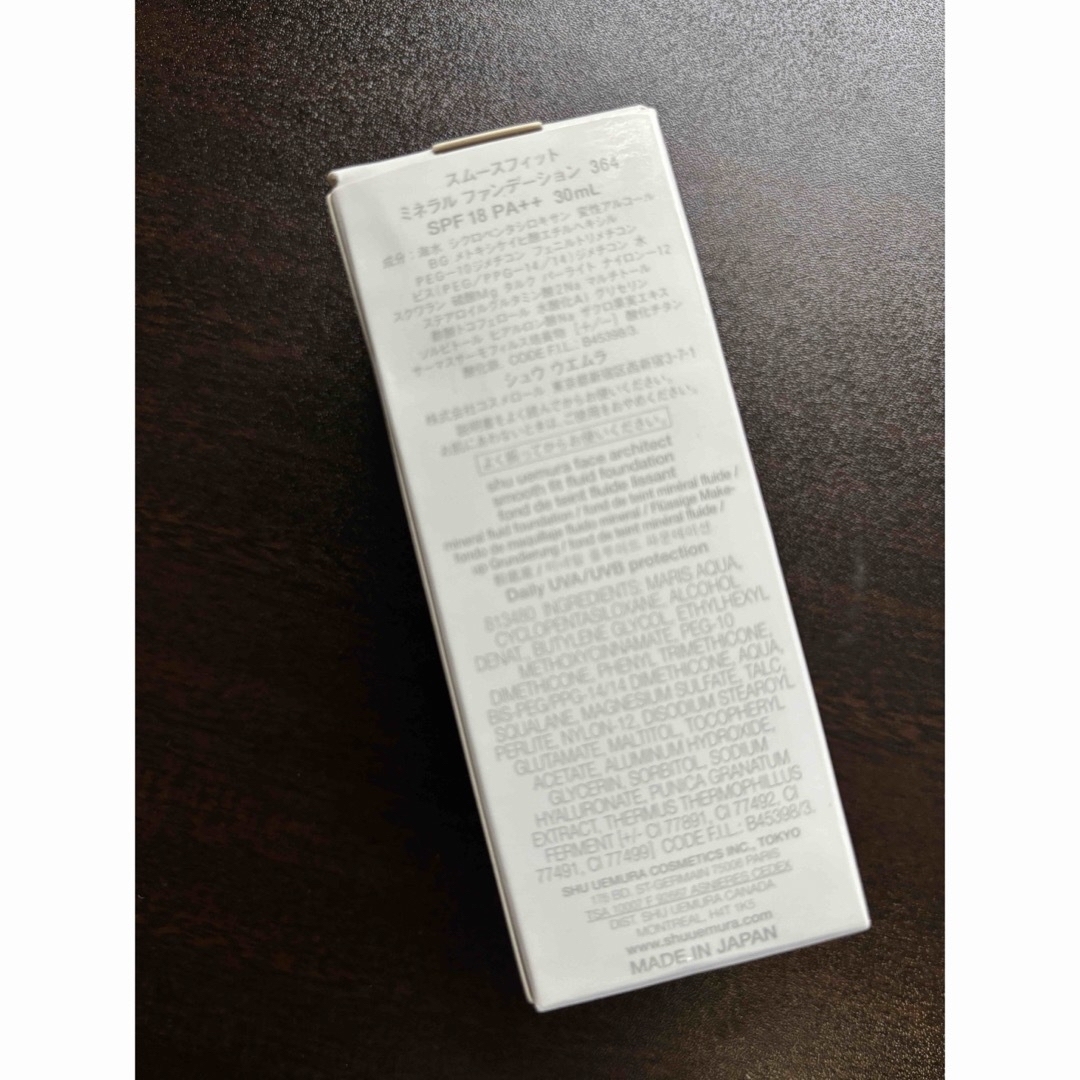 スムースフィット
ミネラル ファンデーション 364
SPF 18 PA++ 30mL
成分：海水 シクロペンタシロキサン 変性アルコール
BG メトキシケイヒ酸エチルヘキシル
PEG-10ジメチコン フェニルトリメチコン
ビス(PEG/PPG-14/14)ジメチコン 水
スクワラン 硫酸Mg タルク パーライト ナイロン-12
ステアロイルグルタミン酸2Na マルチトール
酢酸トコフェロール 水酸化Al グリセリン
ソルビトール ヒアルロン酸Na ザクロ果実エキス
サーマスサーモフィルス培養物 [+/-] 酸化チタン
酸化鉄 CODE F.I.L.: B45398/3.
シュウ ウエムラ
株式会社コスメロール 東京都新宿区西新宿3-7-1
説明書をよく読んでからお使いください。
お肌にあわないときは、ご使用をおやめください。
よく振ってからお使いください。
shu uemura face architect
smooth fit fluid foundation
fond de teint fluide lissant
mineral fluid foundation / fond de teint minéral fluide /
fondo de maquillaje fluido mineral / Flüssige Make-
up Grundierung / fond de teint minéral fluide /
Daily UVA/UVB protection
813480 INGREDIENTS: MARIS AQUA,
CYCLOPENTASILOXANE, ALCOHOL
DENAT, BUTYLENE GLYCOL, ETHYLHEXYL
METHOXYCINNAMATE, PEG-10
DIMETHICONE, PHENYL TRIMETHICONE,
BIS-PEG/PPG-14/14 DIMETHICONE, AQUA,
SQUALANE, MAGNESIUM SULFATE, TALC,
PERLITE, NYLON-12, DISODIUM STEAROYL
GLUTAMATE, MALTITOL, TOCOPHERYL
ACETATE, ALUMINUM HYDROXIDE,
GLYCERIN, SORBITOL, SODIUM
HYALURONATE, PUNICA GRANATUM
EXTRACT, THERMUS THERMOPHILLUS
FERMENT [+/- CI 77891, CI 77492, CI
77491, CI 77499] CODE F.I.L.: B45398/3.
SHU UEMURA COSMETICS INC., TOKYO
175 BD. ST-GERMAIN 75006 PARIS
TSA 10007 F 92667 ASNIERES CEDEX
DIST. SHU UEMURA CANADA
MONTREAL, H4T 1K5
www.shuuemura.com
MADE IN JAPAN